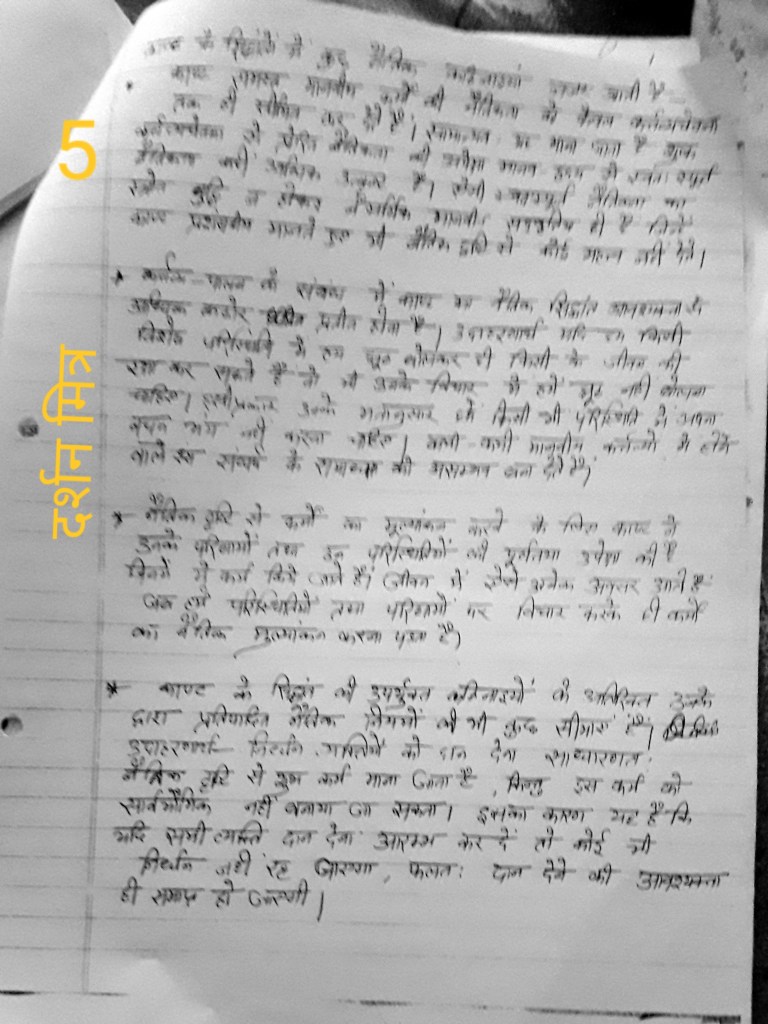 काण्ट के सिद्धांत में कुछ नैतिक कठिनाइयां नजर आती है
काण्ट समस्त मानवीय कर्मों की नैतिकता को केवल कर्तव्यचेतना
तक ही सीमित कर देते हैं। सामान्यतः यह माना जाता है शुष्क
कर्तव्यचेतना से प्रेरित नैतिकता की अपेक्षा मानव हृदय से स्वतः स्फूर्त
नैतिकता कहीं अधिक उत्कृष्ट है। ऐसी नैतिकता का
स्त्रोत बुद्धि न होकर नैसर्गिक मानवीय सदप्रवृत्तियां ही है जिन्हें
काण्ट प्रशंसनीय मानते हुए भी नैतिक दृष्टि से कोई महत्व नहीं देते।
* कर्तव्य-पालन के संबंध में काण्ट का नैतिक सिद्धांत आवश्यकता से
अत्यधिक कठोर प्रतीत होता है। उदाहरणार्थ यदि हम किसी
विशेष परिस्थिति में हम झूठ बोलकर ही किसी के जीवन की
रक्षा कर सकते हैं तो भी उनके विचार में हमें झूठ नहीं बोलना
चाहिए। इसीप्रकार उनके मतानुसार हमें किसी भी परिस्थिति में अपना
वचन भंग नहीं करना चाहिए। कभी-कभी मानवीय कर्तव्यों में होने
वाले इस संघर्ष के समाधान को असम्भव बना देते हैं।
* नैतिक दृष्टि से कर्मों का मूल्यांकन करने के लिए काण्ट ने
उनके परिणामों तथा उन परिस्थितियों की पूर्णतया उपेक्षा की है
जिनमें ये कर्म किये जाते हैं। जीवन में ऐसे अनेक अवसर आते हैं
जब हमें परिस्थितियों तथा परिणामों पर विचार करके ही कर्मों
का नैतिक मूल्यांकन करना पड़ता है।
* काण्ट के सिद्धांत की उपर्युक्त कठिनाइयों के अतिरिक्त उनके
द्वारा प्रतिपादित नैतिक नियमों की भी कुछ सीमाएं हैं।
उदाहरणार्थ निर्धन व्यक्तियों को दान देना साधारणतः
नैतिक दृष्टि से शुभ कर्म माना जाता है, किन्तु इस कर्म को
सार्वभौमिक नहीं बनाया जा सकता। इसका कारण यह है कि
यदि सभी व्यक्ति दान देना आरम्भ कर दें तो कोई भी
निर्धन नहीं रह जाएगा, फलतः दान देने की आवश्यकता
ही समाप्त हो जाएगी।
5
दर्शन मित्र